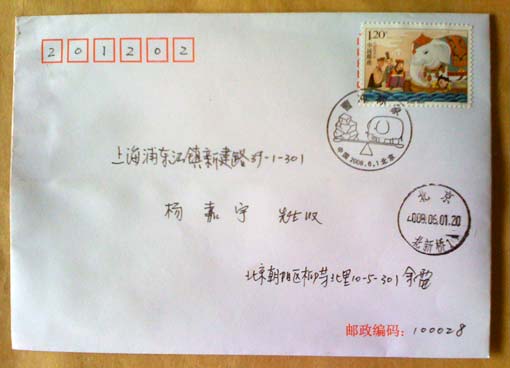 201202
1.20
中国邮政
曹冲称象
中国2008.6.1北京
上海浦东江镇新建路39-1-301
杨嘉宇 先生收
北京
2008.06.01.20
北京朝阳区柳芳北里10-5-301
邮政编码：100028